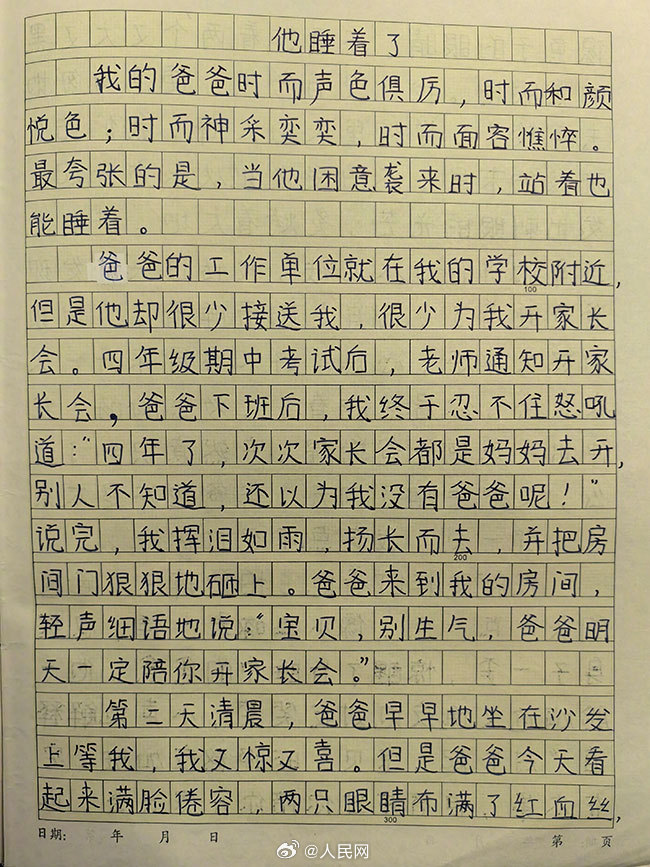 他睡着了
我的爸爸时而声色俱厉，时而和颜
悦色；时而神采奕奕，时而面容憔悴。
最夸张的是，当他困意袭来时，站着也
能睡着。
爸爸的工作单位就在我的学校附近，
100
但是他却很少接送我，很少为我开家长
会。四年级期中考试后，老师通知开家
长会，爸爸下班后，我终于忍不住怒吼
道：“四年了，次次家长会都是妈妈去开，
别人不知道，还以为我没有爸爸呢！”
说完，我挥泪如雨，扬长而去，并把房
200
间门狠狠地砸上。爸爸来到我的房间，
轻声细语地说：“宝贝，别生气，爸爸明
天一定陪你开家长会。”
第二天清晨，爸爸早早地坐在沙发
上等我，我又惊又喜。但是爸爸今天看
起来满脸倦容，两只眼睛布满了红血丝，
300
日期： 年 月 日 第 页
@人民网